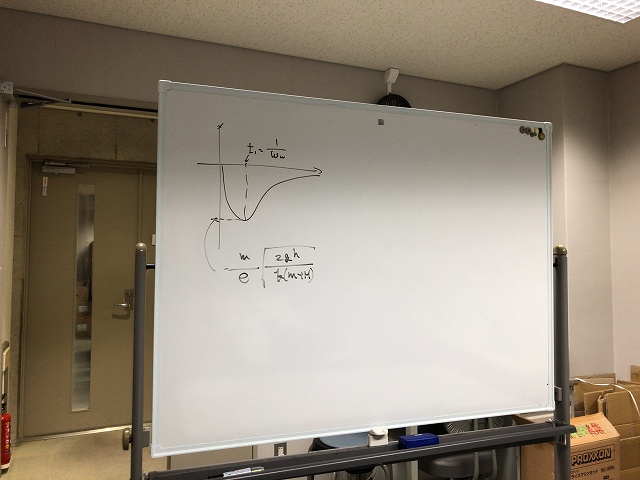 t₁ = 1/ωₙ
m/e √(2gh/k(m+M))
PROXXON